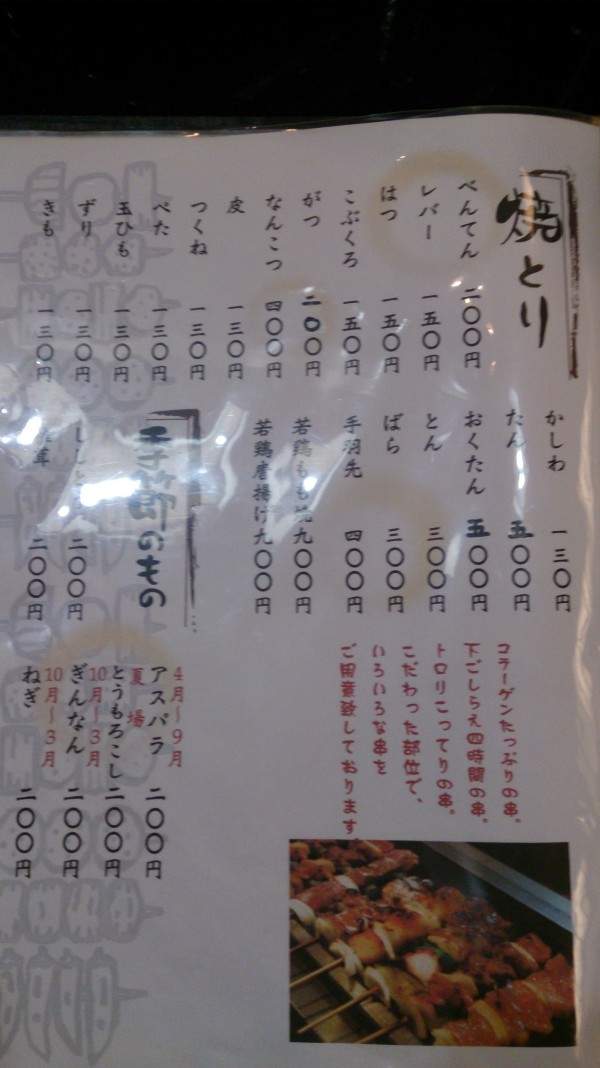 焼とり
べんてん 二〇〇円
レバー 一五〇円
はつ 一五〇円
こぶくろ 一五〇円
がつ 二〇〇円
なんこつ 四〇〇円
皮 一三〇円
つくね 一三〇円
べた 一三〇円
玉ひも 一三〇円
ずり 一三〇円
きも 一三〇円
かしわ 一三〇円
たん 五〇〇円
おくたん 五〇〇円
とん 三〇〇円
ばら 三〇〇円
手羽先 四〇〇円
若鶏もも焼九〇〇円
若鶏唐揚げ九〇〇円
季節のもの
二〇〇円
茸 二〇〇円
4月〜9月
アスパラ 二〇〇円
夏場
とうもろこし 二〇〇円
10月〜3月
ぎんなん 二〇〇円
10月〜3月
ねぎ 二〇〇円
コラーゲンたっぷりの串。
下ごしらえ四時間の串。
トロリこってりの串。
こだわった部位で、
いろいろな串を
ご用意致しております